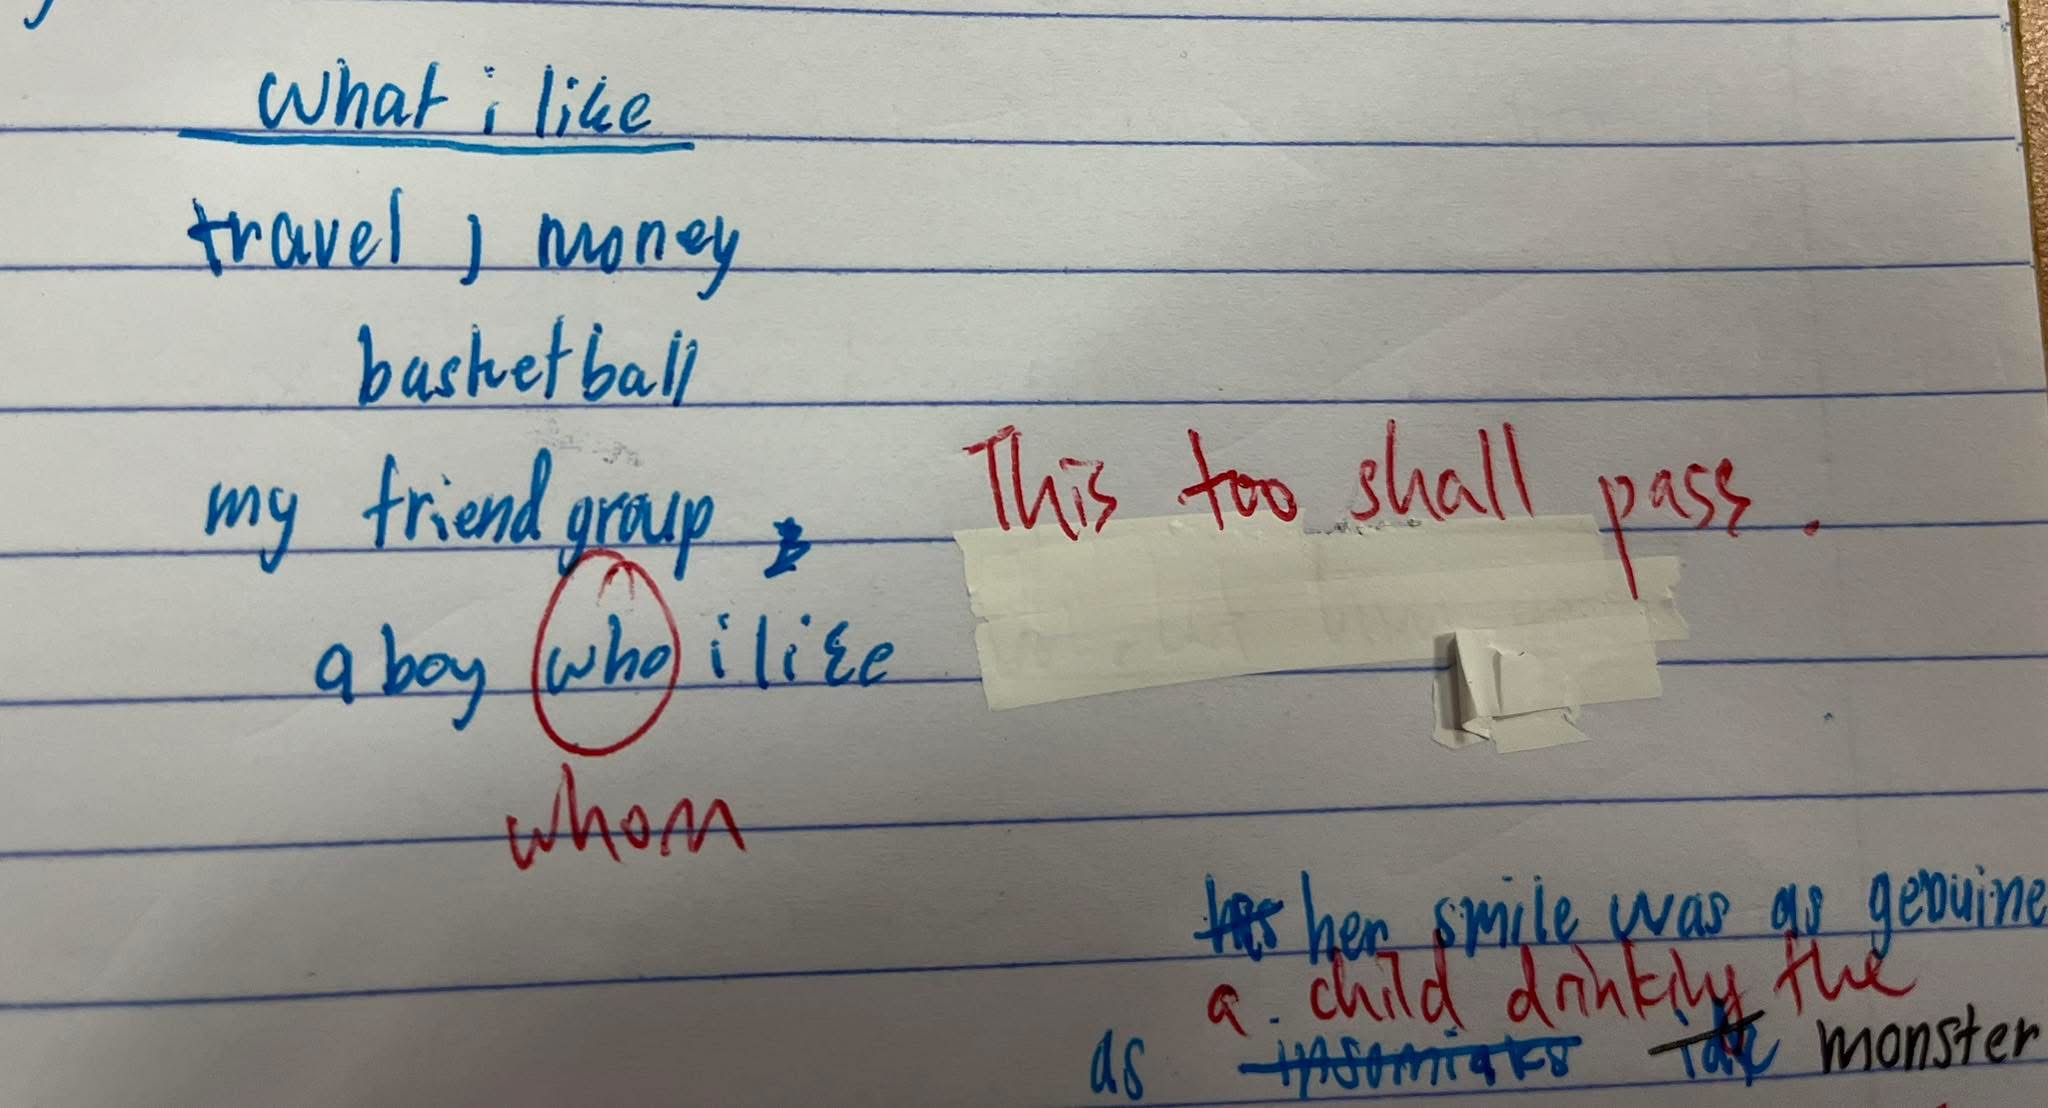 what i like
travel, money
basketball
my friend group
a boy who i like
whom
This too shall pass.
her smile was as genuine
a child drinking the
as insomiaks monster